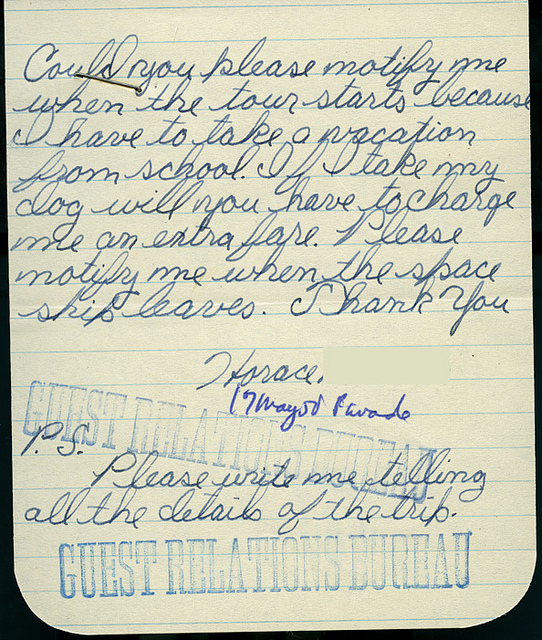 Could you please notify me
when the tour starts because
I have to take a vacation
from school. If I take my
dog will you have to charge
me an extra fare. Please
notify me when the space
ship leaves. Thank You
Horace.
17
GUEST RELATIONS BUREAU
P.S.
Please write me telling
all the details of the trip.
GUEST RELATIONS BUREAU